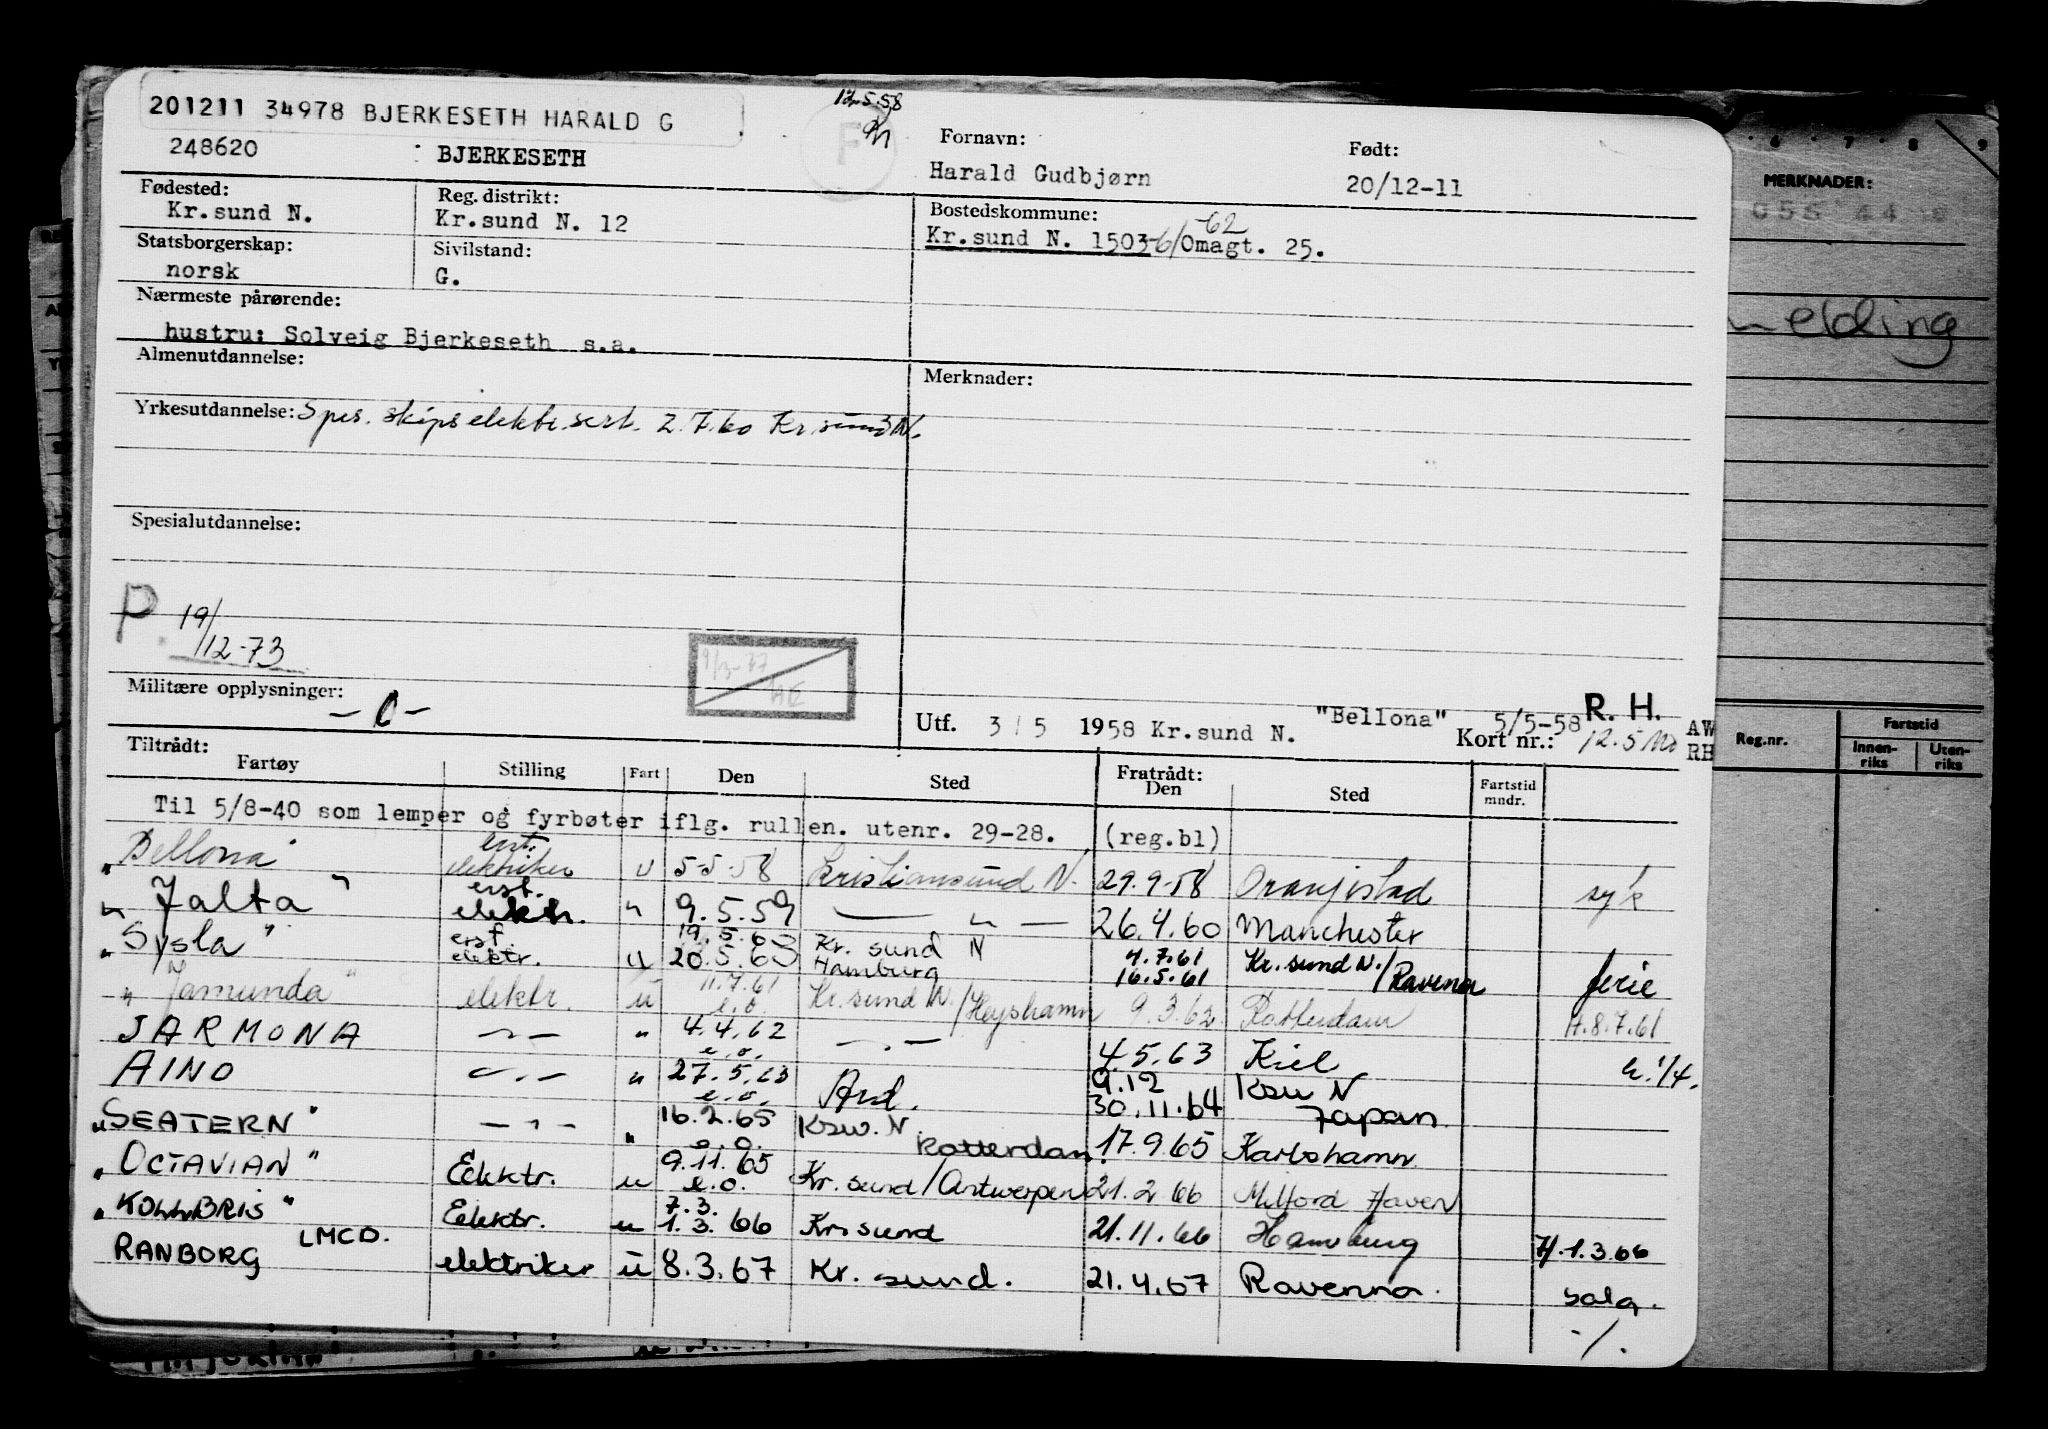 201211 34978 BJERKESETH HARALD G
12.5.58
248620
BJERKESETH
F
Fornavn:
Harald Gudbjørn
Født:
20/12-11
Fødested:
Kr.sund N.
Reg. distrikt:
Kr.sund N. 12
Bostedskommune:
-62
Kr.sund N. 1503-6/Omagt. 25.
Statsborgerskap:
norsk
Sivilstand:
G.
Nærmeste pårørende:
hustru: Solveig Bjerkeseth s.a.
Almenutdannelse:
Merknader:
Yrkesutdannelse: Spes. skipselektr.sert. 2.7.60 Kr.sund N.
Spesialutdannelse:
P. 19/12-73
9/3-77
Militære opplysninger: -0-
Utf. 3/5 1958 Kr.sund N. "Bellona" 5/5-58 R. H.
Kort nr.: 12.5
AW
RH
Tiltrådt:
Fartøy Stilling Fart Den Sted Fratrådt: Den Sted Fartstid mndr.
Til 5/8-40 som lemper og fyrbøter iflg. rullen. utenr. 29-28. (reg.bl)
"Bellona" elektriker u 5-5-58 Kristiansund N. 29.9-58 Oranjestad syk
"Jalta" erst. elektr. " 9.5.59 — " — 26.4.60 Manchester
"Sysla" erst. elektr. u 19.5.60 20.5.60 Kr. sund N Hamburg 4.7.61 16.5.61 Kr.sund N./Ravenna ferie
"Jamunda" elektr. u 11.7.61 e.o. Kr.sund N./Heysham 9.3.62 Rotterdam H.8.7.61
JARMONA -"- " 4.4.62 e.o. -"- 4.5.63 Kiel h. 1/4.
AINO -"- " 27.5.63 e.o. Ard. 9.12 30.11.64 Ksu N Japan
"SEATERN" -"- " 16.2.65 e.o. Ksu. N. Rotterdam 17.9.65 Karlshamn
"OCTAVIAN" Elektr. u 9.11.65 e.o. Kr.sund/Antwerpen 21.2.66 Milford Haven
"KOLLBRIS" Elektr. u 7.3. 1.3.66 Kr.sund 21.11.66 Hamburg H.1.3.66
RANBORG LMCD. elektriker u 8.3.67 Kr. sund. 21.4.67 Ravenna. salg.
-/.
6 7 8 9
MERKNADER:
056 44
melding
Reg.nr.
Fartstid
Innenriks
Utenriks